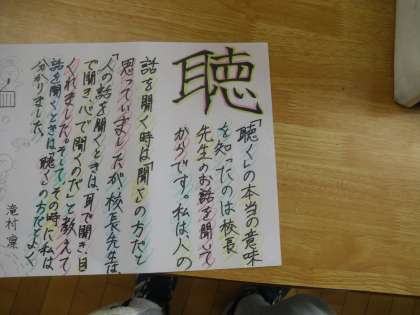 聴
「聴く」の本当の意味
を知ったのは校長
先生のお話を聞いて
からです。私は人の
話を聞く時は「聞く」の方だと
思っていましたが、校長先生は、
「人の話を聞くときは、耳で聞き、目
で聞き、心で聞くのだ」と教えて
くれました。そして、その時に私は
話を聞くときは「聴く」の方だとよく
分かりました。
滝村 凜